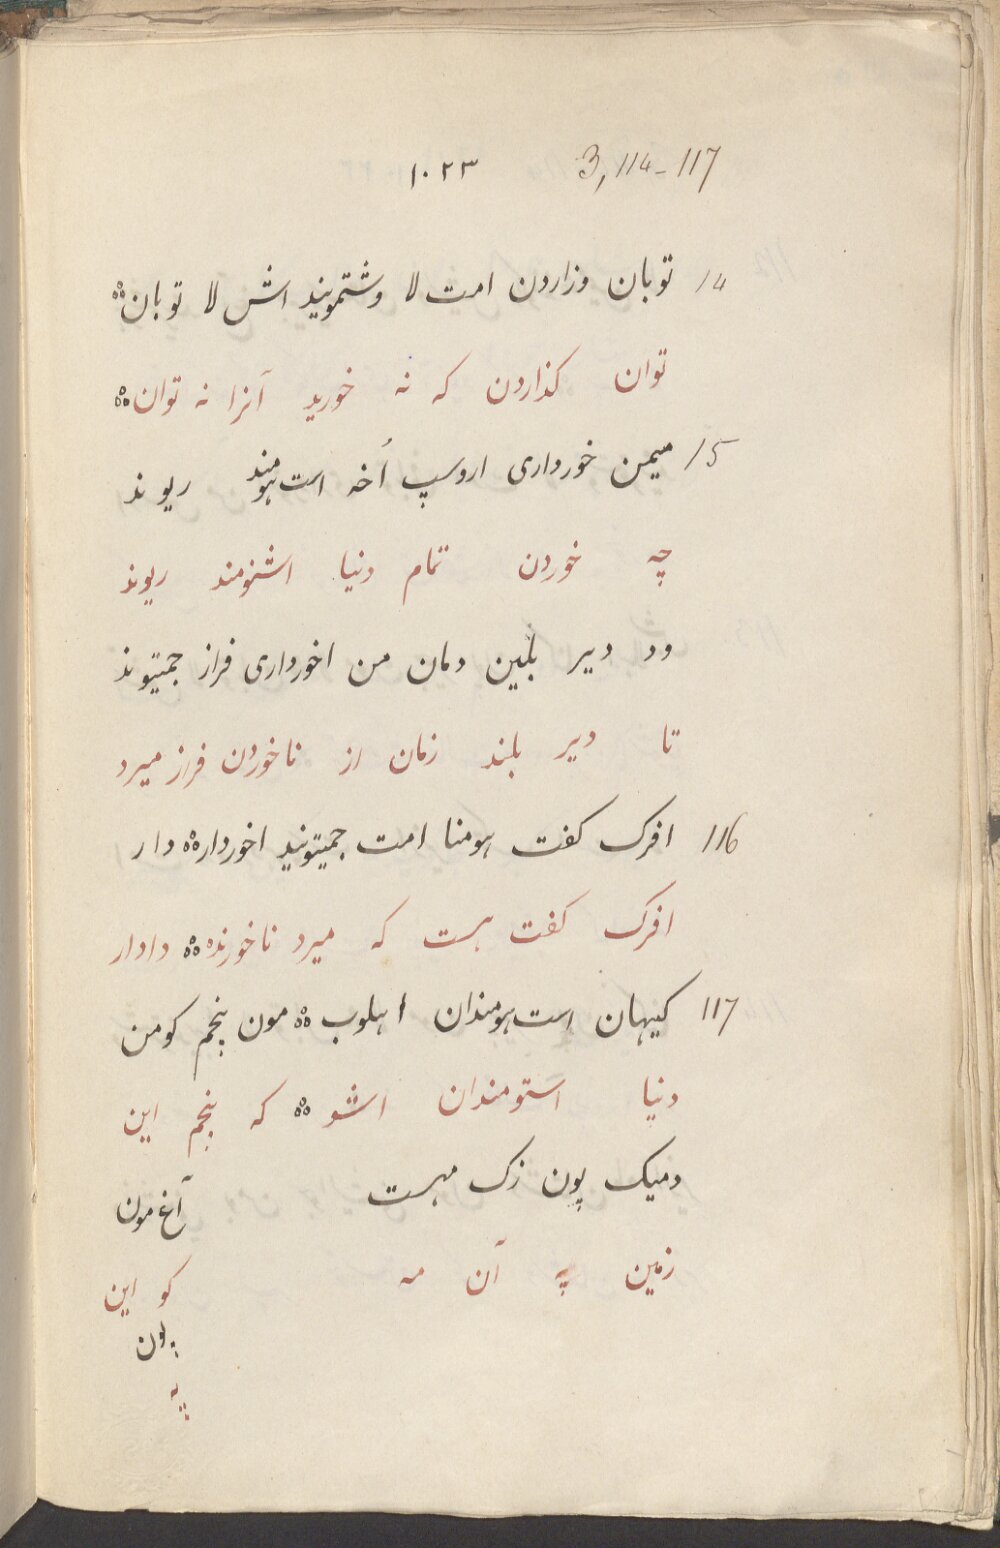 ۱۰۲۳ 3, 114-117
14 توبان وزاردن امت لا وشتمویند اش لا توبان
توان کذاردن که نه خورید آنرا نه توان
15 میمن خورداری اروسپ اُخه است هومند ریوند
چه خوردن تمام دنیا اشنومند ریوند
ود دیر بلین دمان من اخورداری فراز جمیتوند
تا دیر بلند زمان از ناخوردن فراز میرد
116 افرک کفت هومنا امت جمیتونید اخوردار دار
افرک کفت هست که میرد ناخورنده دادار
117 کیهان است هومندان اهلوب مون پنجم کومن
دنیا استومندان اشو که پنجم این
دمیک پون زک مهست
آغ مون
زمین په آن مه
کو این
پون
په